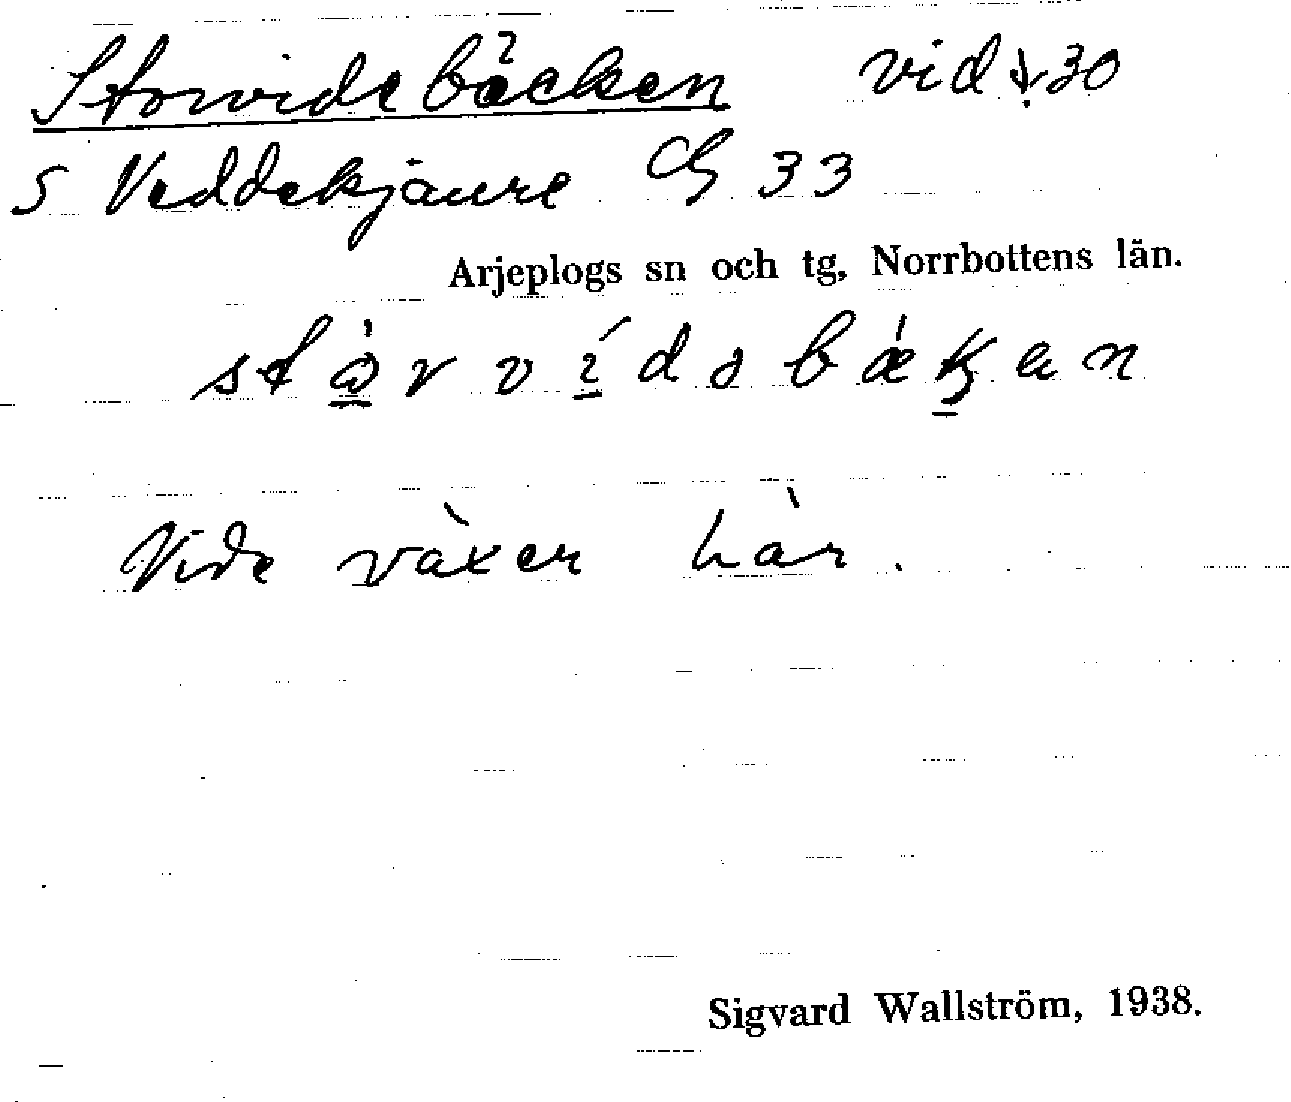 Storvidebäcken vid 30
S Veddekjaure G 33
Arjeplogs sn och tg, Norrbottens län.
Vide växer här.
Sigvard Wallström, 1938.